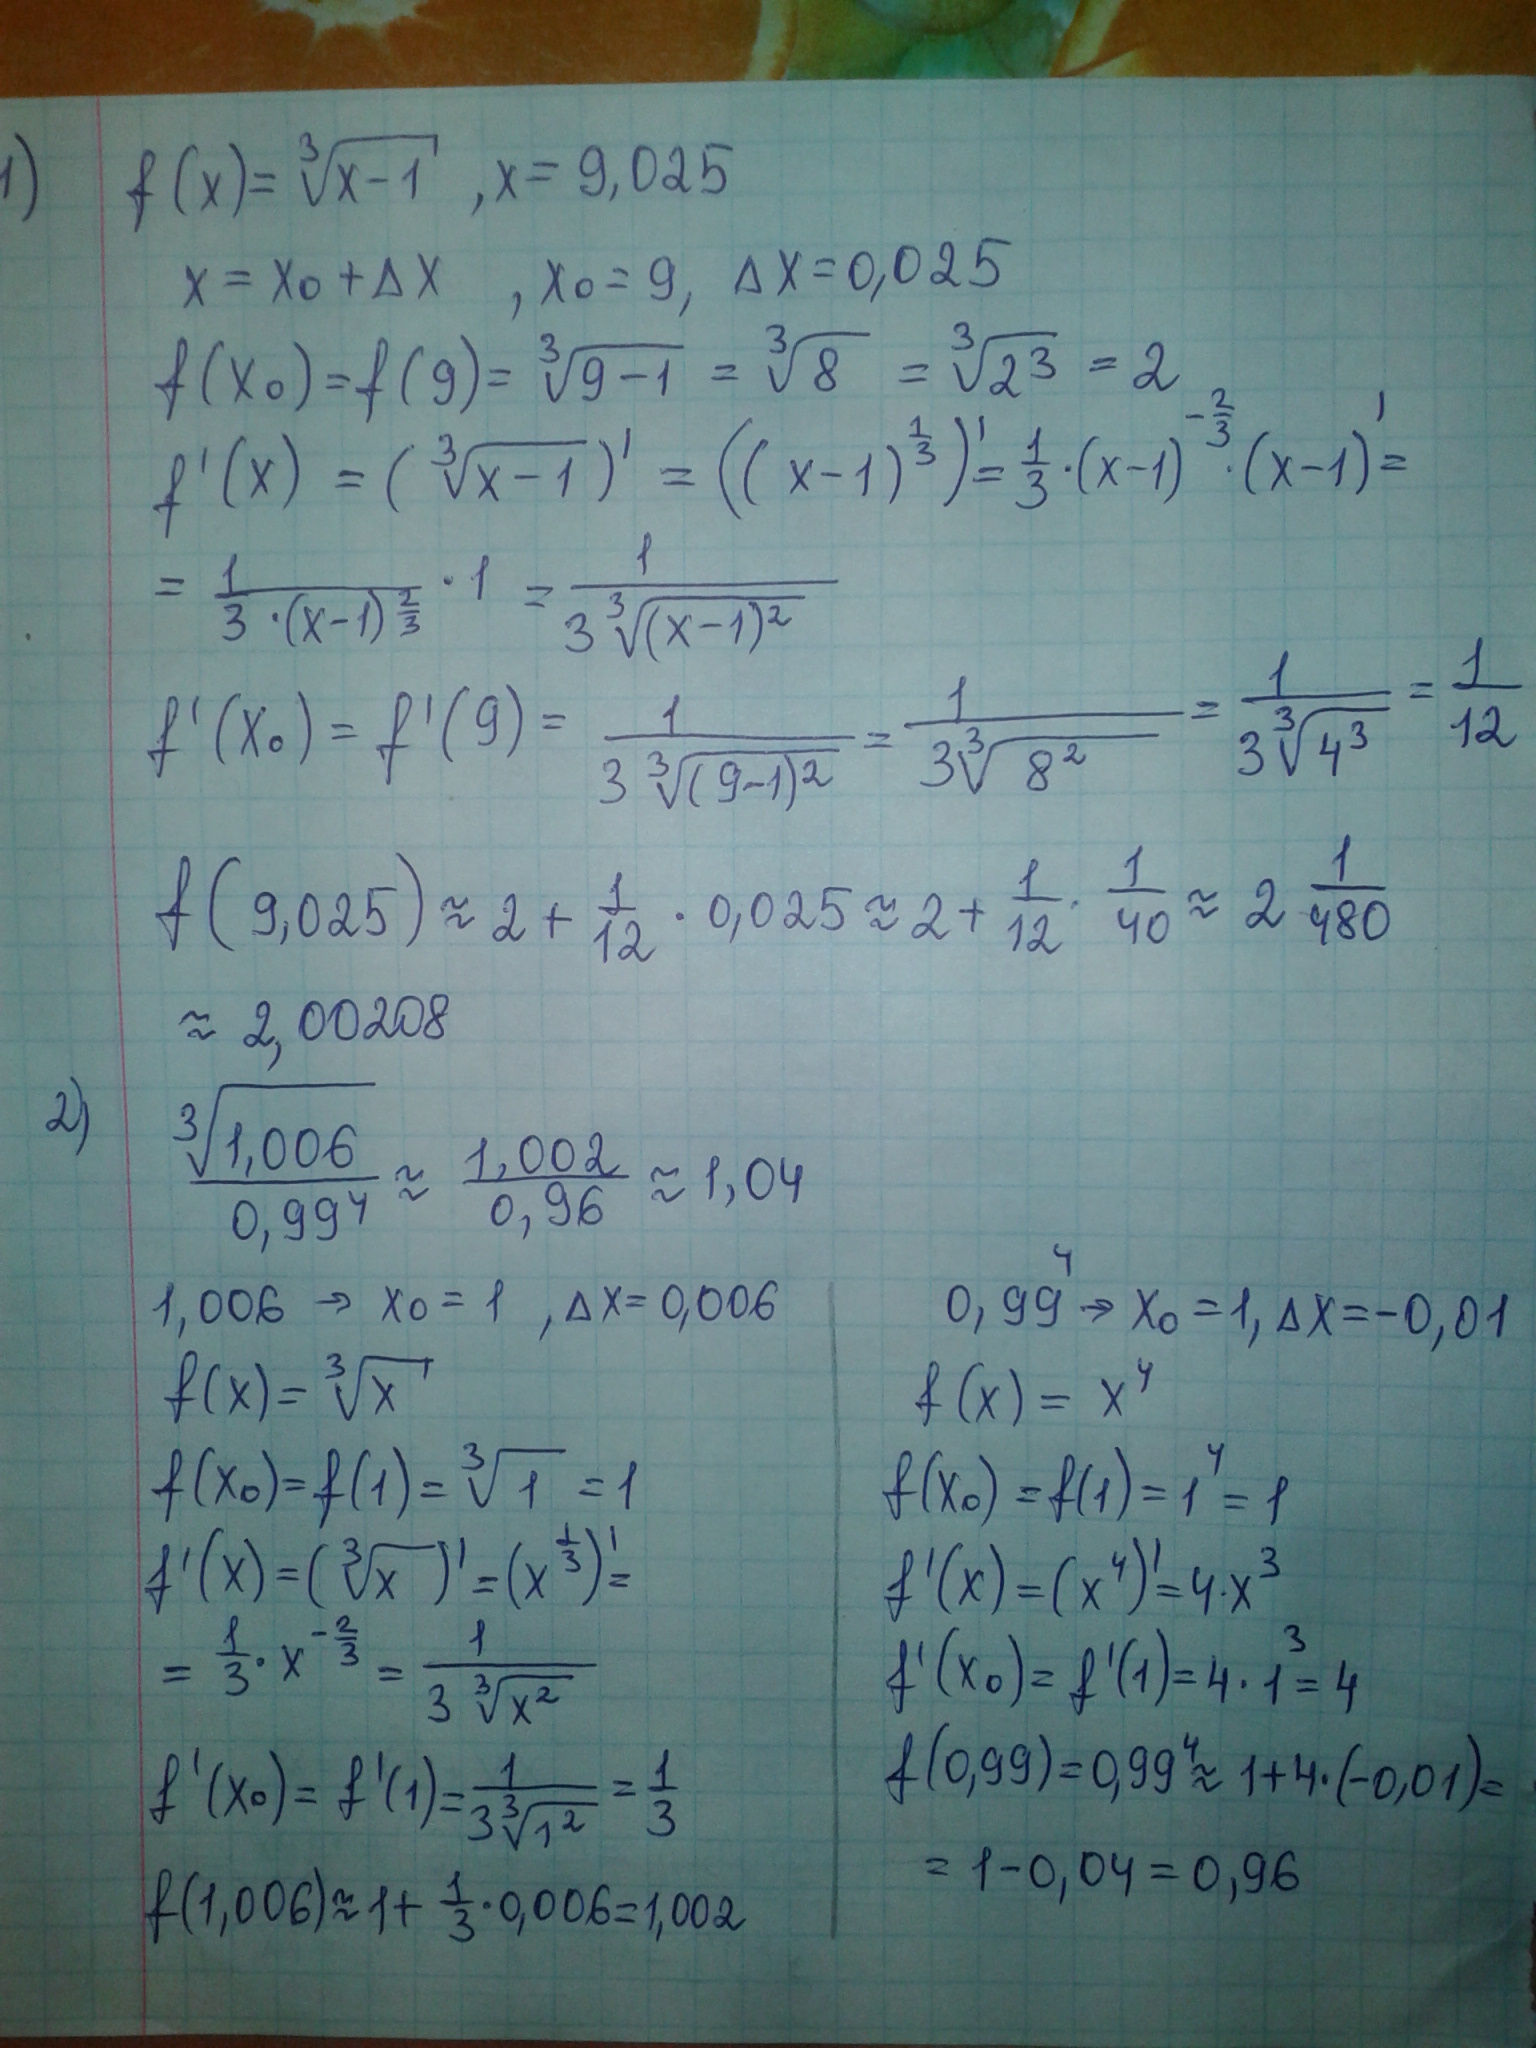 1) f(x) = ∛(x-1) , x = 9,025
x = x₀ + Δx , x₀ = 9, Δx = 0,025
f(x₀) = f(9) = ∛(9-1) = ∛8 = ∛(2³) = 2
f'(x) = (∛(x-1))' = ((x-1)^(1/3))' = 1/3 · (x-1)^(-2/3) · (x-1)' =
= 1/(3·(x-1)^(2/3)) · 1 = 1/(3∛((x-1)²))
f'(x₀) = f'(9) = 1/(3∛((9-1)²)) = 1/(3∛(8²)) = 1/(3∛(4³)) = 1/12
f(9,025) ≈ 2 + 1/12 · 0,025 ≈ 2 + 1/12 · 1/40 ≈ 2 1/480
≈ 2,00208
2) ∛(1,006)/0,99⁴ ≈ 1,002/0,96 ≈ 1,04
1,006 → x₀ = 1 , Δx = 0,006
f(x) = ∛x
f(x₀) = f(1) = ∛1 = 1
f'(x) = (∛x)' = (x^(1/3))' =
= 1/3 · x^(-2/3) = 1/(3∛(x²))
f'(x₀) = f'(1) = 1/(3∛(1²)) = 1/3
f(1,006) ≈ 1 + 1/3 · 0,006 = 1,002
0,99⁴ → x₀ = 1, Δx = -0,01
f(x) = x⁴
f(x₀) = f(1) = 1⁴ = 1
f'(x) = (x⁴)' = 4·x³
f'(x₀) = f'(1) = 4·1³ = 4
f(0,99) = 0,99⁴ ≈ 1+4·(-0,01) =
= 1-0,04 = 0,96